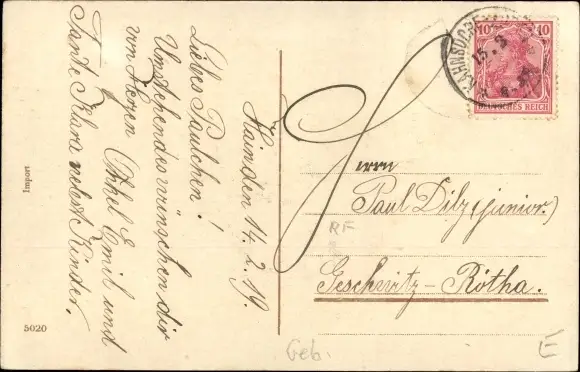 Hainden 14.2.19.
Liebes Paulchen!
Umstehendes wünschen dir
von Herzen Onkel Emil und
Tante Klara nebst Kinder.
Herrn
Paul Dilz (junior.)
Geschwitz-Rötha.
10 10
DEUTSCHES REICH
Import
5020
RF
Geb.
E